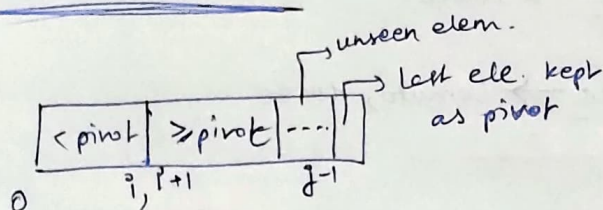 unseen elem.
Last ele. kept
as pivot
< pivot ≥ pivot ----
0 i, i+1 j-1